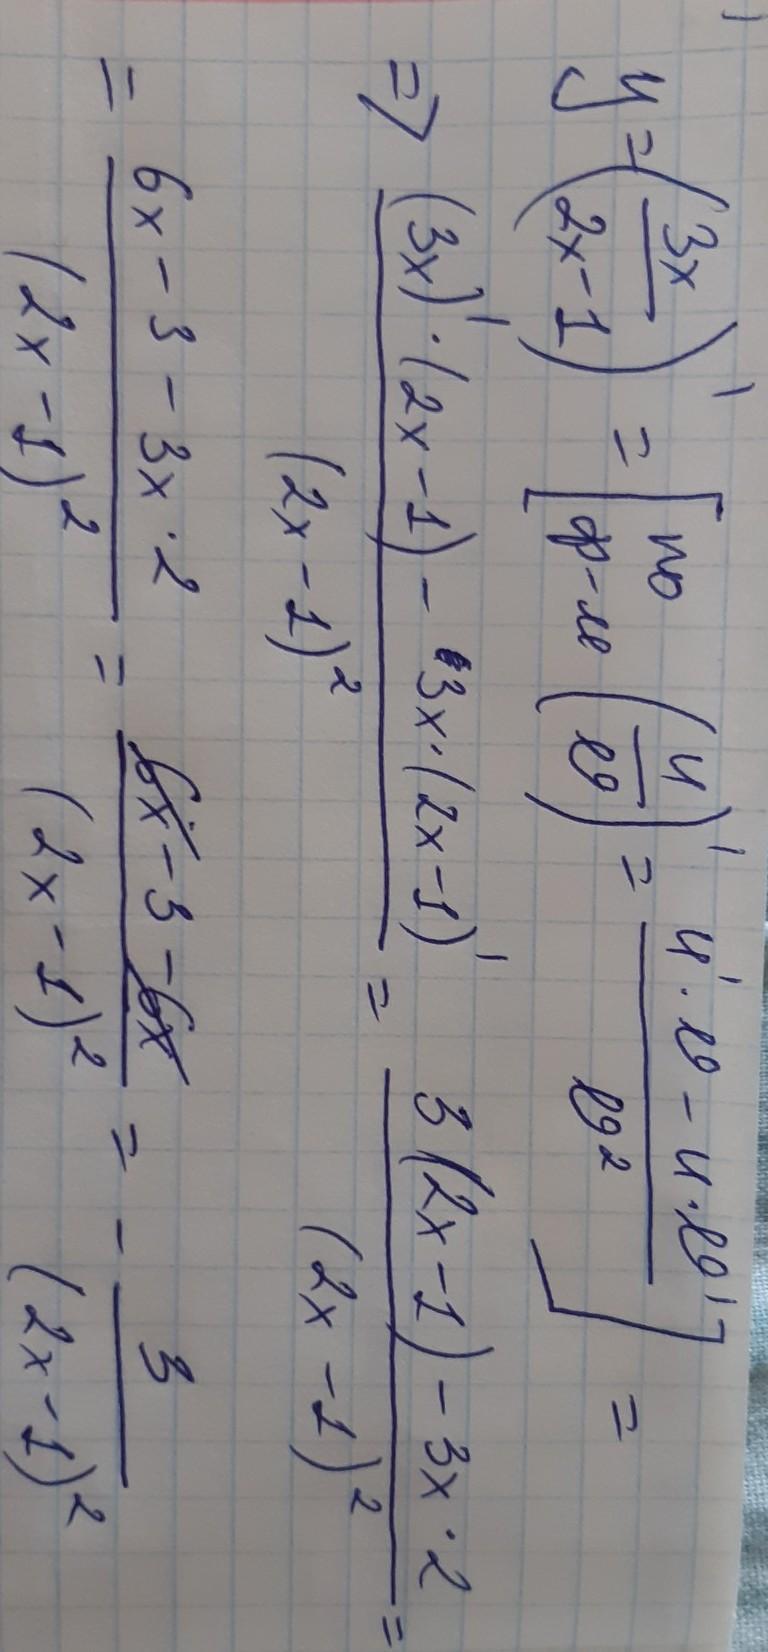 y = (3x / 2x-1)' = [по ф-ле (u/v)' = u'·v - u·v' / v²] =
=> (3x)'·(2x-1) - 3x·(2x-1)' / (2x-1)² = 3(2x-1) - 3x·2 / (2x-1)² =
= 6x-3-3x·2 / (2x-1)² = 6x-3-6x / (2x-1)² = - 3 / (2x-1)²